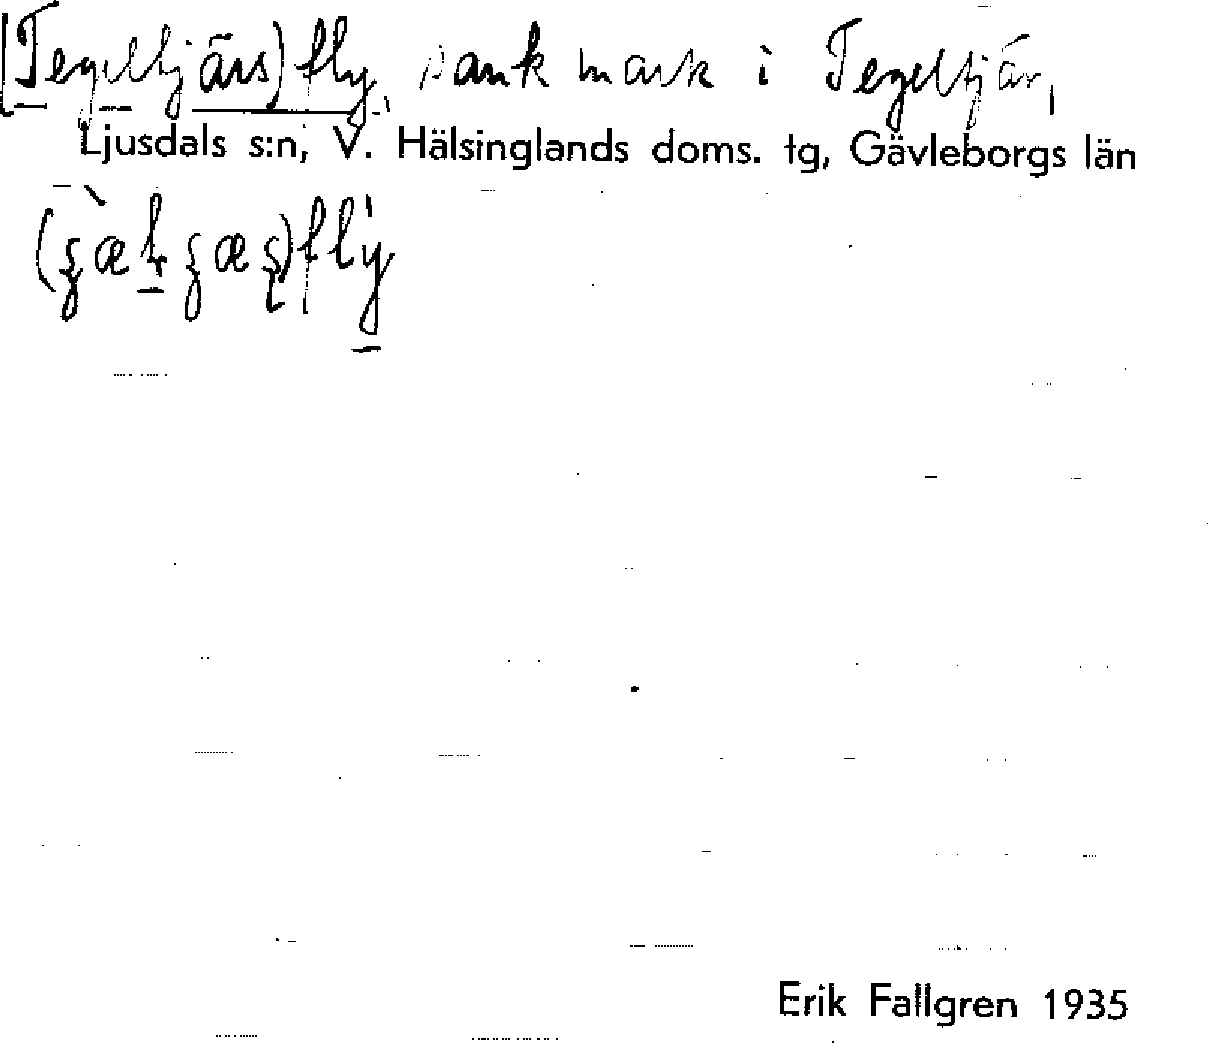 (Tegeltjärs)fly, sank mark i Tegeltjär,
Ljusdals s:n, V. Hälsinglands doms. tg, Gävleborgs län
Erik Fallgren 1935